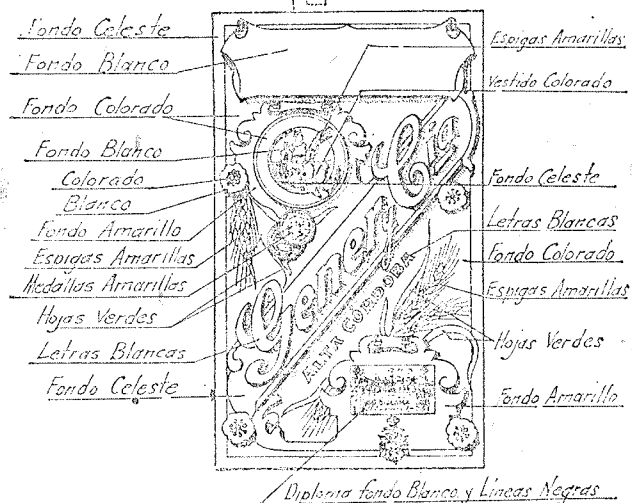 Fondo Celeste
Fondo Blanco
Fondo Colorado
Fondo Blanco
Colorado
Blanco
Fondo Amarillo
Espigas Amarillas
Medallas Amarillas
Hojas Verdes
Letras Blancas
Fondo Celeste
Gener y Cia
ALTA CORDOBA
Espigas Amarillas
Vestido Colorado
Fondo Celeste
Letras Blancas
Fondo Colorado
Espigas Amarillas
Hojas Verdes
Fondo Amarillo
Diploma fondo Blanco y Líneas Negras